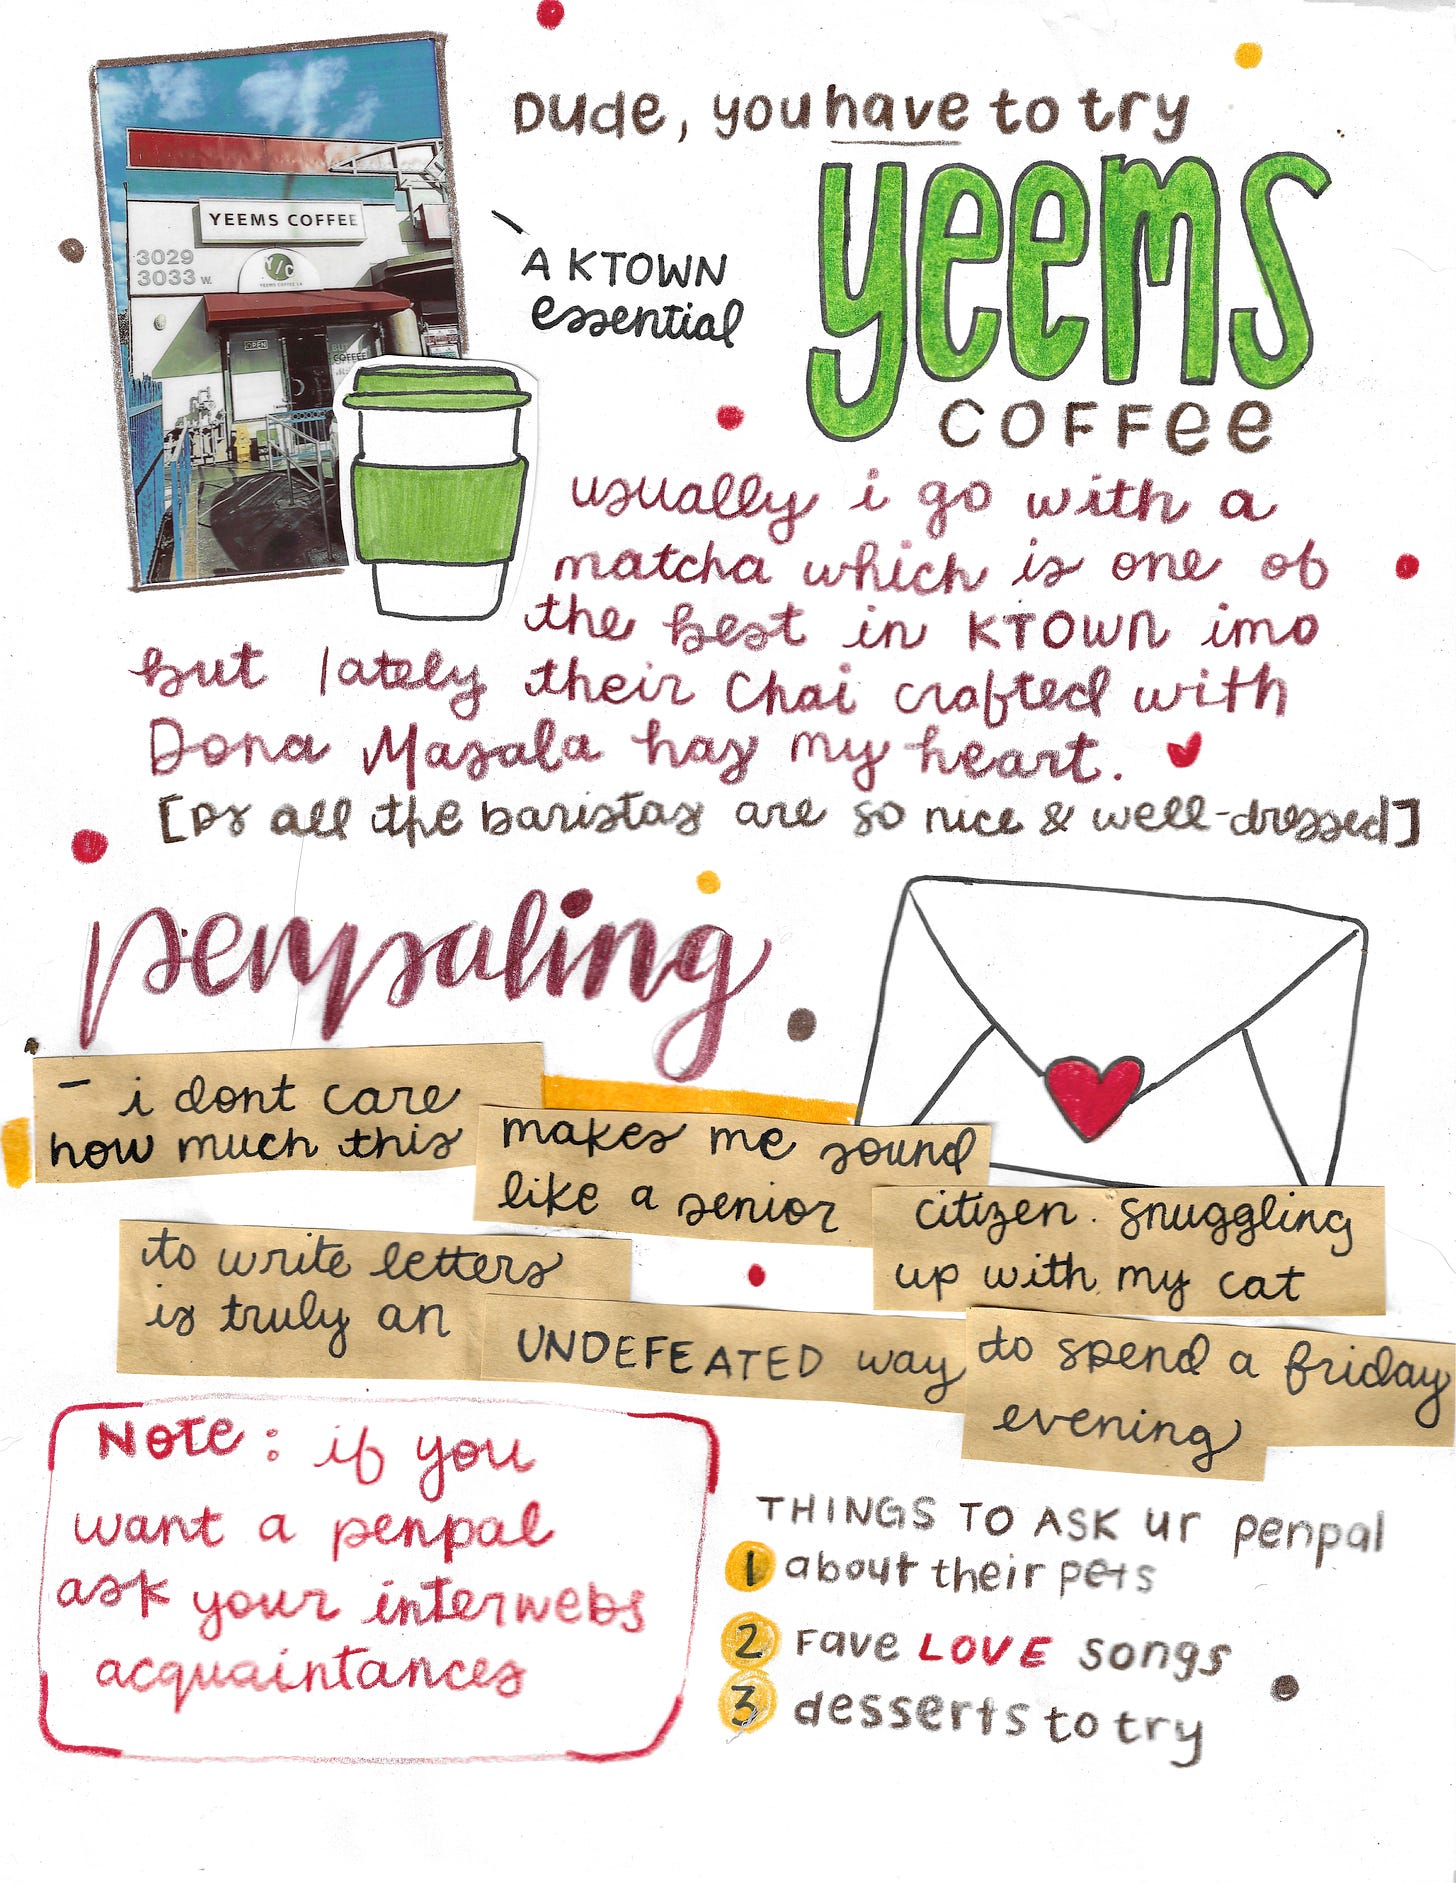 Dude, you have to try
yeems
COFFee
A KTOWN
essential
YEEMS COFFEE
3029
3033 W.
Y/C
YEEMS COFFEE LA
OPEN
COFFEE
usually i go with a
matcha which is one of
the best in KTOWN imo
but lately their Chai crafted with
Dona Masala has my heart.
[ps all the baristas are so nice & well-dressed]
penpaling
- i dont care
how much this
makes me sound
like a senior
citizen. snuggling
up with my cat
to write letters
is truly an
UNDEFEATED way
to spend a friday
evening
Note: if you
want a penpal
ask your interwebs
acquaintances
THINGS TO ASK ur penpal
1 about their pets
2 Fave LOVE songs
3 desserts to try